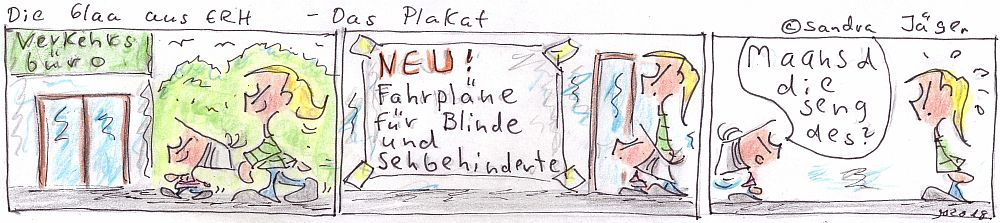 Die Glaa aus ERH - Das Plakat
©Sandra Jäger
Verkehrs
büro
NEU!
Fahrpläne
für Blinde
und
Sehbehinderte
Maansd
die
seng
des?